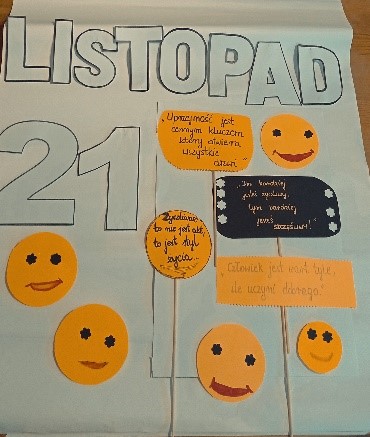 LISTOPAD
21
„Uprzejmość jest
cennym kluczem
który otwiera
wszystkie
drzwi."
„Im bardziej
jesteś życzliwy,
tym bardziej
jesteś
SZCZĘŚLIWY!"
Życzliwość
to nie jest akt,
to jest styl
życia.
"Człowiek jest wart tyle,
ile uczyni dobrego."